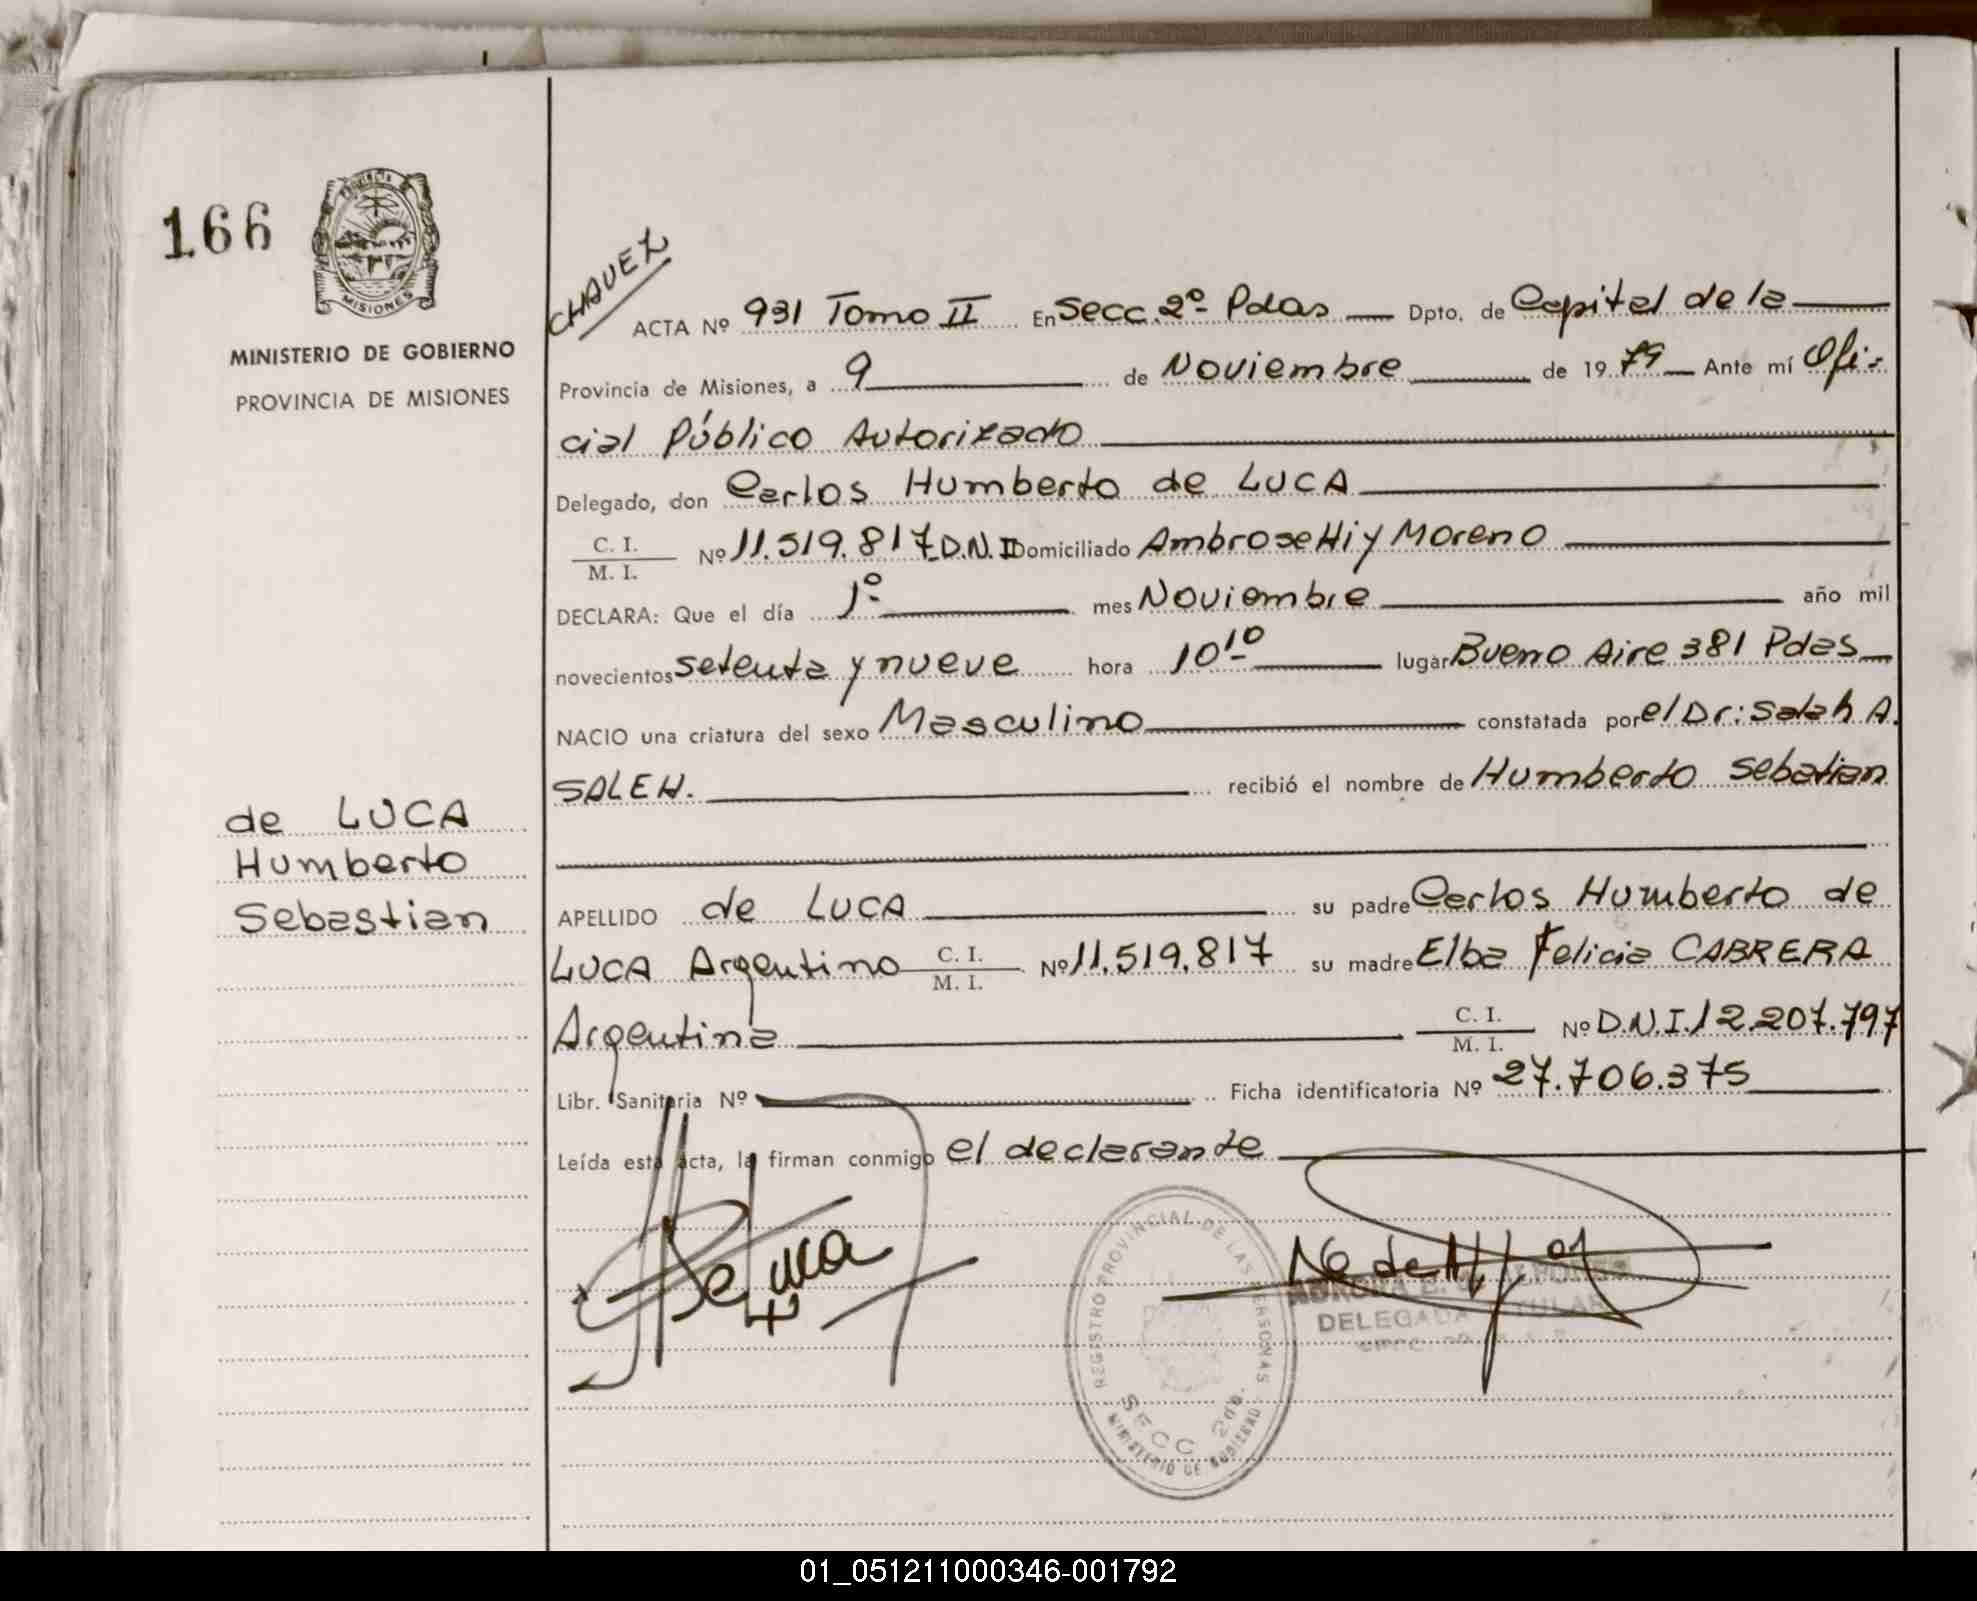 166
PROVINCIA
MISIONES
MINISTERIO DE GOBIERNO
PROVINCIA DE MISIONES
CHAVEZ
ACTA Nº 931 Tomo II En Secc. 2º Pdas Dpto. de Capital de la
Provincia de Misiones, a 9 de Noviembre de 1979 Ante mí Ofi-
cial Público Autorizado
Delegado, don Carlos Humberto de LUCA
C. I.
M. I. Nº 11.519.817 D.N.I Domiciliado Ambrosetti y Moreno
DECLARA: Que el día 1º mes Noviembre año mil
novecientos setenta y nueve hora 10 10 lugar Bueno Aire 381 Pdas
NACIO una criatura del sexo Masculino constatada por el Dr: Salah A.
SALEH. recibió el nombre de Humberto Sebatian
de LUCA
Humberto
Sebastian
APELLIDO de LUCA su padre Carlos Humberto de
LUCA Argentino C. I. M. I. Nº 11.519.817 su madre Elba Felicia CABRERA
Argentina C. I. M. I. Nº D.N.I. 12.207.797
Libr. Sanitaria Nº Ficha identificatoria Nº 27.706.375
Leída esta acta, la firman conmigo el declarante
REGISTRO PROVINCIAL DE LAS PERSONAS
SECC 2da.
MINISTERIO DE GOBIERNO
DELEGADA TITULAR
01_051211000346-001792